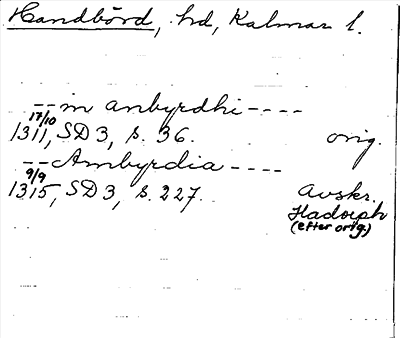 Handbörd, hd, Kalmar l.
-- in anbyrdhi ----
17/10
1311, SD 3, s. 36. orig.
-- Ambyrdia ----
9/9
1315, SD 3, s. 227. Avskr.
Hadorph
(efter orig.)